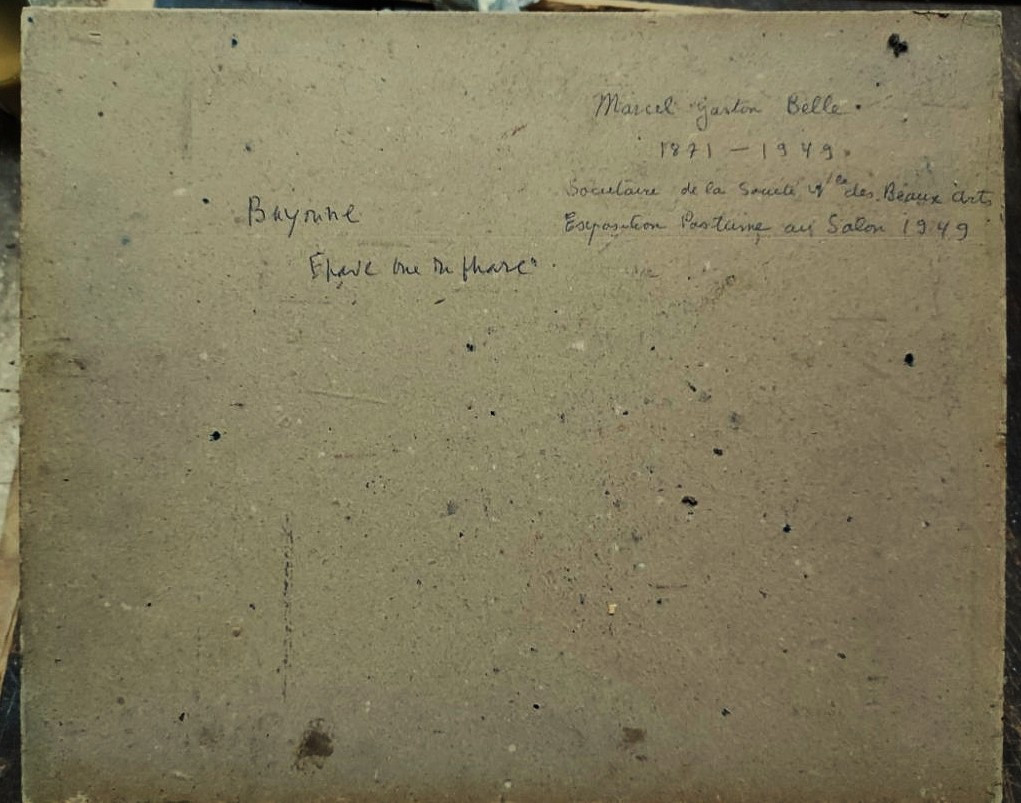 Marcel Gaston Belle.
1871 – 1949.
Societaire de la Societé Nle des Beaux Arts
Exposition Postume au Salon 1949
Bayonne
Epave vue du phare"